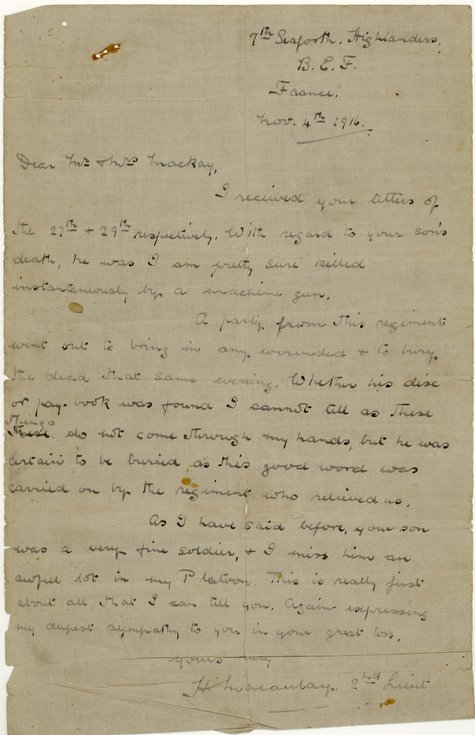 7th Seaforth Highlanders,
B. E. F.
France.
Nov. 4th 1916.
Dear Mr & Mrs Mackay,
I received your letters of
the 27th & 29th respectively. With regard to your son's
death, he was I am pretty sure killed
instantaneously by a machine gun.
A party from this regiment
went out to bring in any wounded & to bury
the dead that same evening. Whether his disc
or pay-book was found I cannot tell as these
things
do not come through my hands, but he was
certain to be buried as this good work was
carried on by the regiment who relieved us.
As I have said before, your son
was a very fine soldier, & I miss him an
awful lot in my Platoon. This is really just
about all that I can tell you. Again expressing
my deepest sympathy to you in your great loss.
Yours truly
H. Macaulay. 2nd Lieut